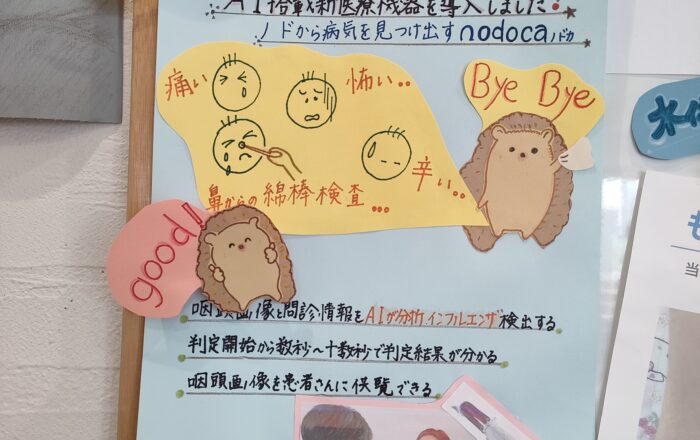 AI搭載新医療機器を導入しました!
ノドから病気を見つけ出すnodocaノドカ
痛い
怖い..
Bye Bye
辛い..
鼻からの綿棒検査...
good!!
咽頭画像と問診情報をAIが分析インフルエンザ検出する
判定開始から数秒~十数秒で判定結果が分かる
咽頭画像を患者さんに供覧できる
当